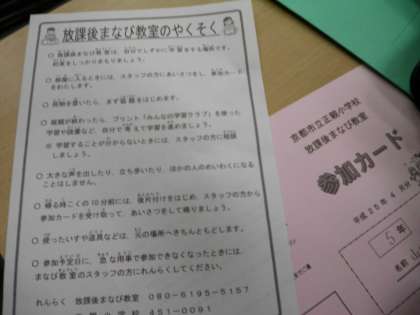 放課後まなび教室のやくそく
○ 放課後まなび教室は、自分でしずかに学習をする場所です。
約束をしっかりまもりましょう。
○ 教室に入るときには、スタッフの方にあいさつをし、参加カード
をわたします。
○ 荷物を置いたら、まず宿題をはじめます。
○ 宿題が終わったら、プリント「みんなの学習クラブ」を使った
学習や読書など、自分で考えて学習を進めましょう。
※ 学習することが分からないときには、スタッフの方に相談
しましょう。
○ 大きな声を出したり、立ち歩いたり、ほかの人のめいわくになる
ことはしません。
○ 帰る時こくの10分前には、後片付けをはじめ、スタッフの方から
参加カードを受け取って、あいさつをして帰りましょう。
○ 使ったいすや道具などは、元の場所へきちんともどします。
○ 参加予定日に、急な用事で参加できなくなったときには、
まなび教室のスタッフの方にれんらくしてください。
れんらく 放課後まなび教室 080-6195-5157
小学校 451-0091
京都市立正親小学校
放課後まなび教室
参加カード
平成25年4月
5年
名前 山